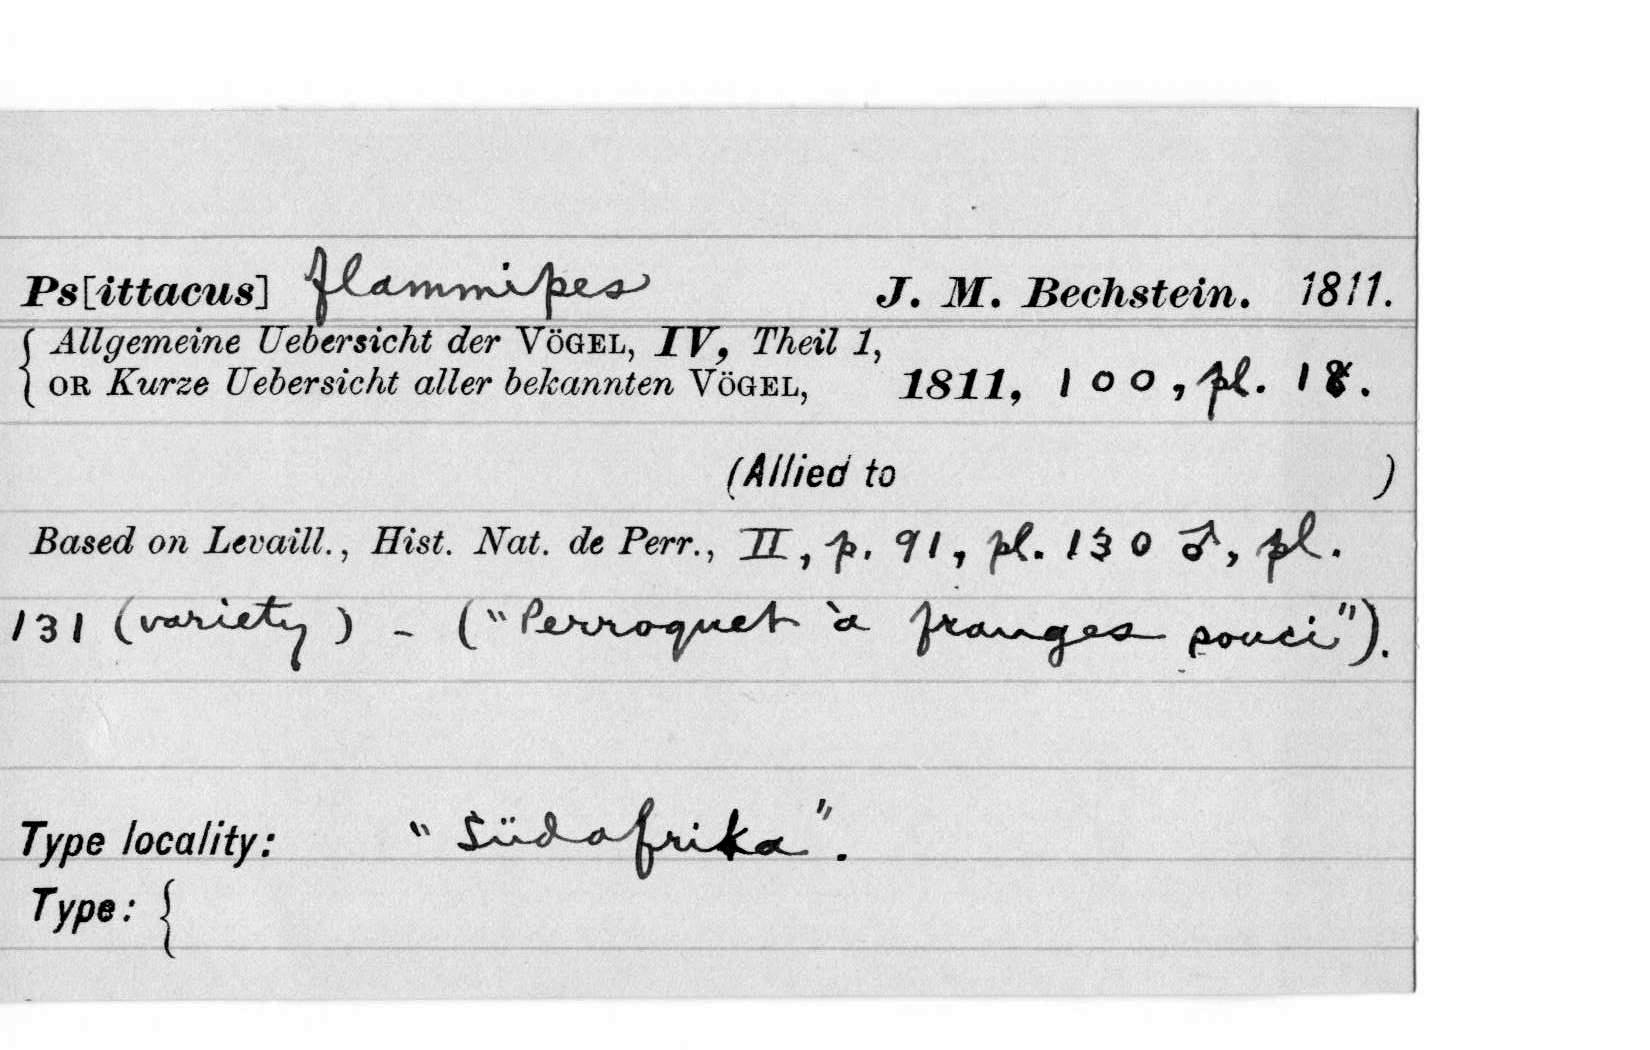 Ps[ittacus] flammipes J. M. Bechstein. 1811.
{ Allgemeine Uebersicht der VÖGEL, IV, Theil 1,
OR Kurze Uebersicht aller bekannten VÖGEL, 1811, 100, pl. 18.
(Allied to )
Based on Levaill., Hist. Nat. de Perr., II, p. 91, pl. 130 ♂, pl.
131 (variety) - ("Perroquet à franges souci").
Type locality: "Südafrika".
Type: {